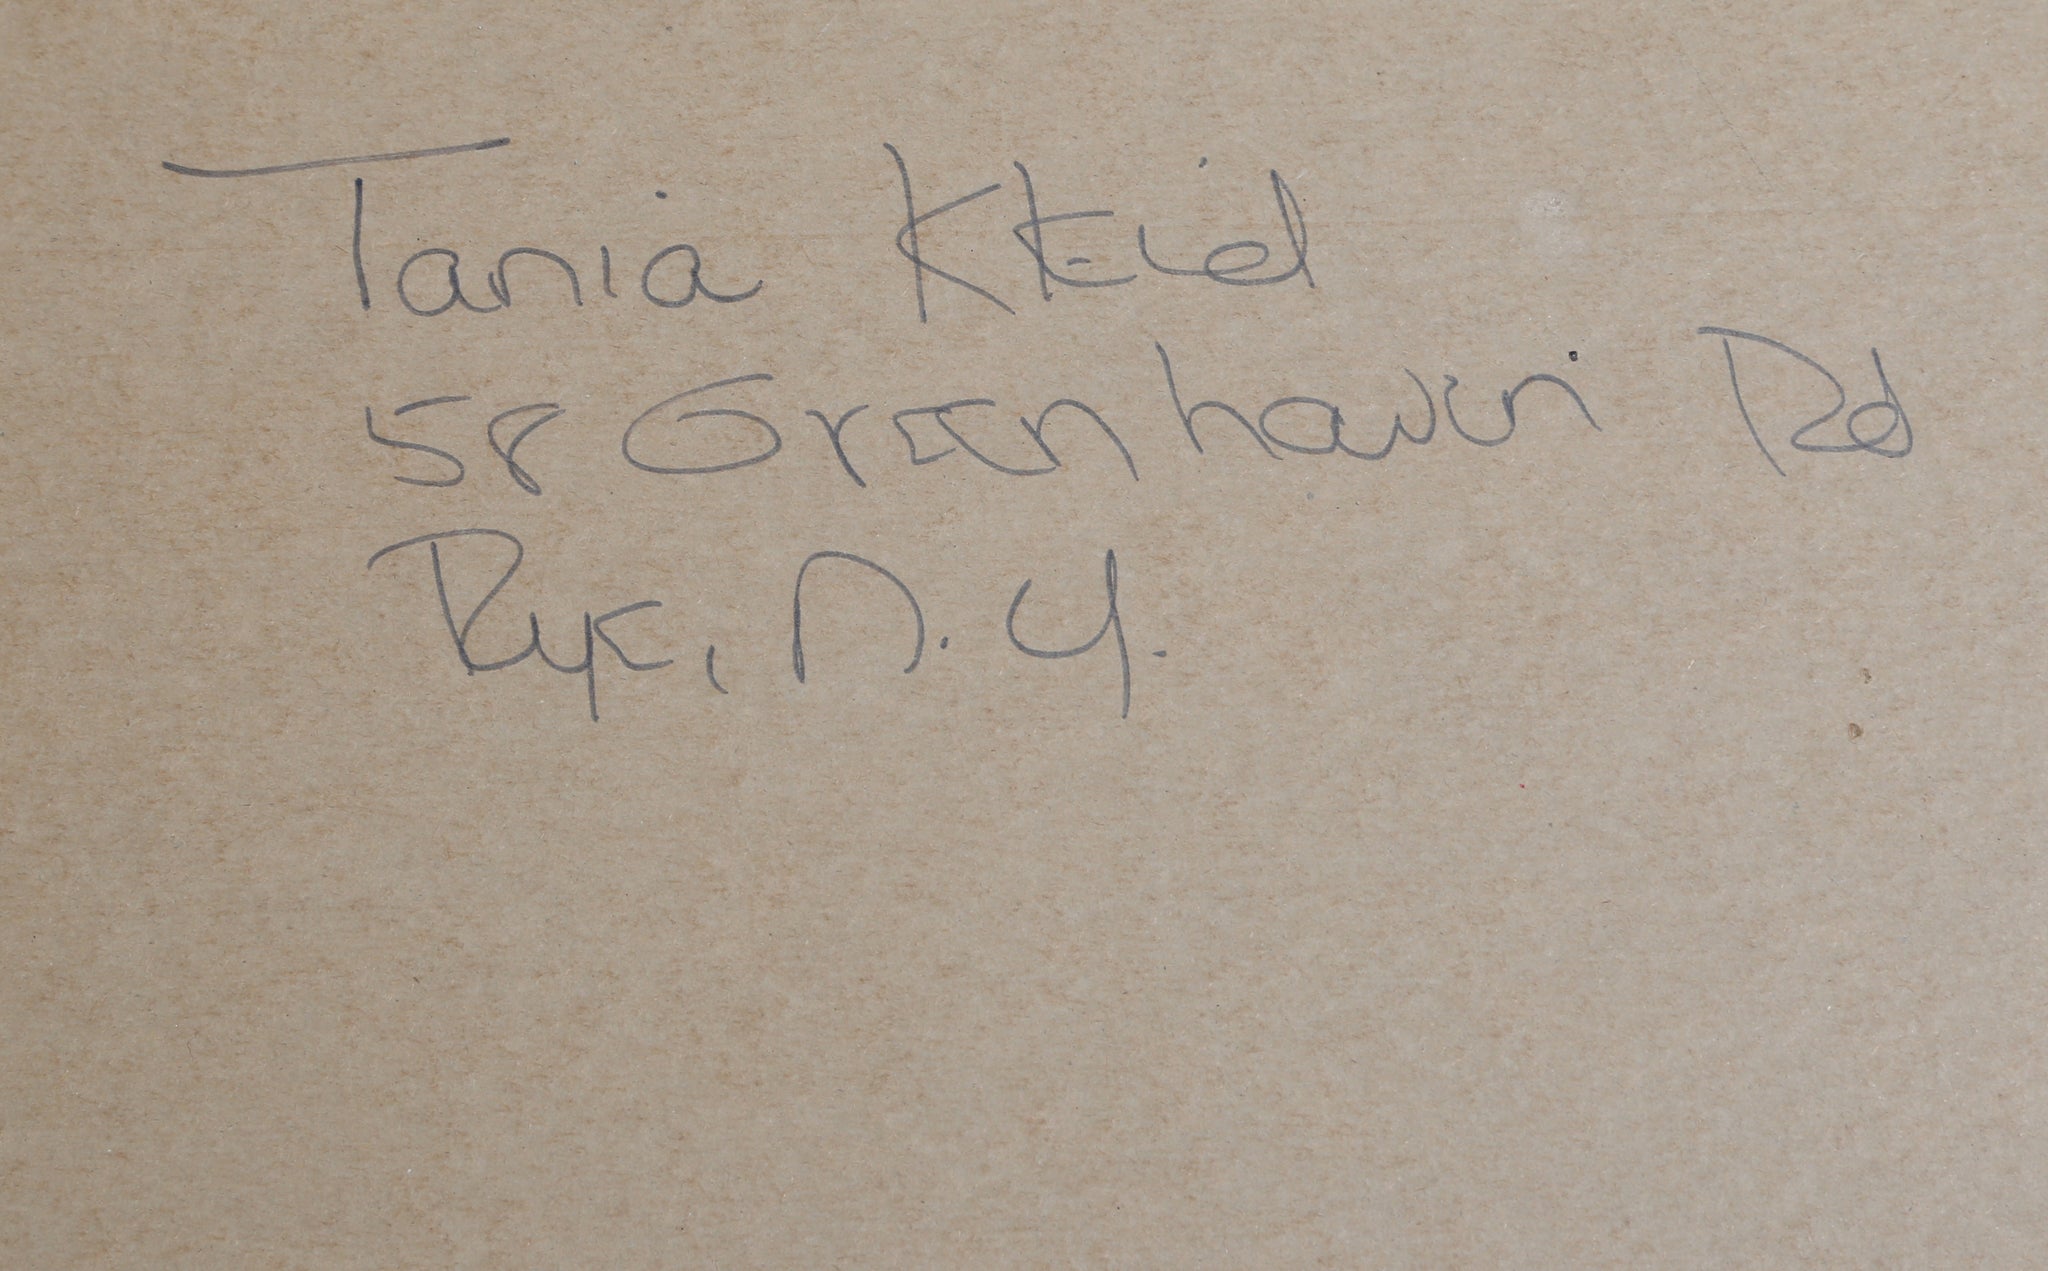 Tania
58 Greenhaven Rd
Rye, N.Y.